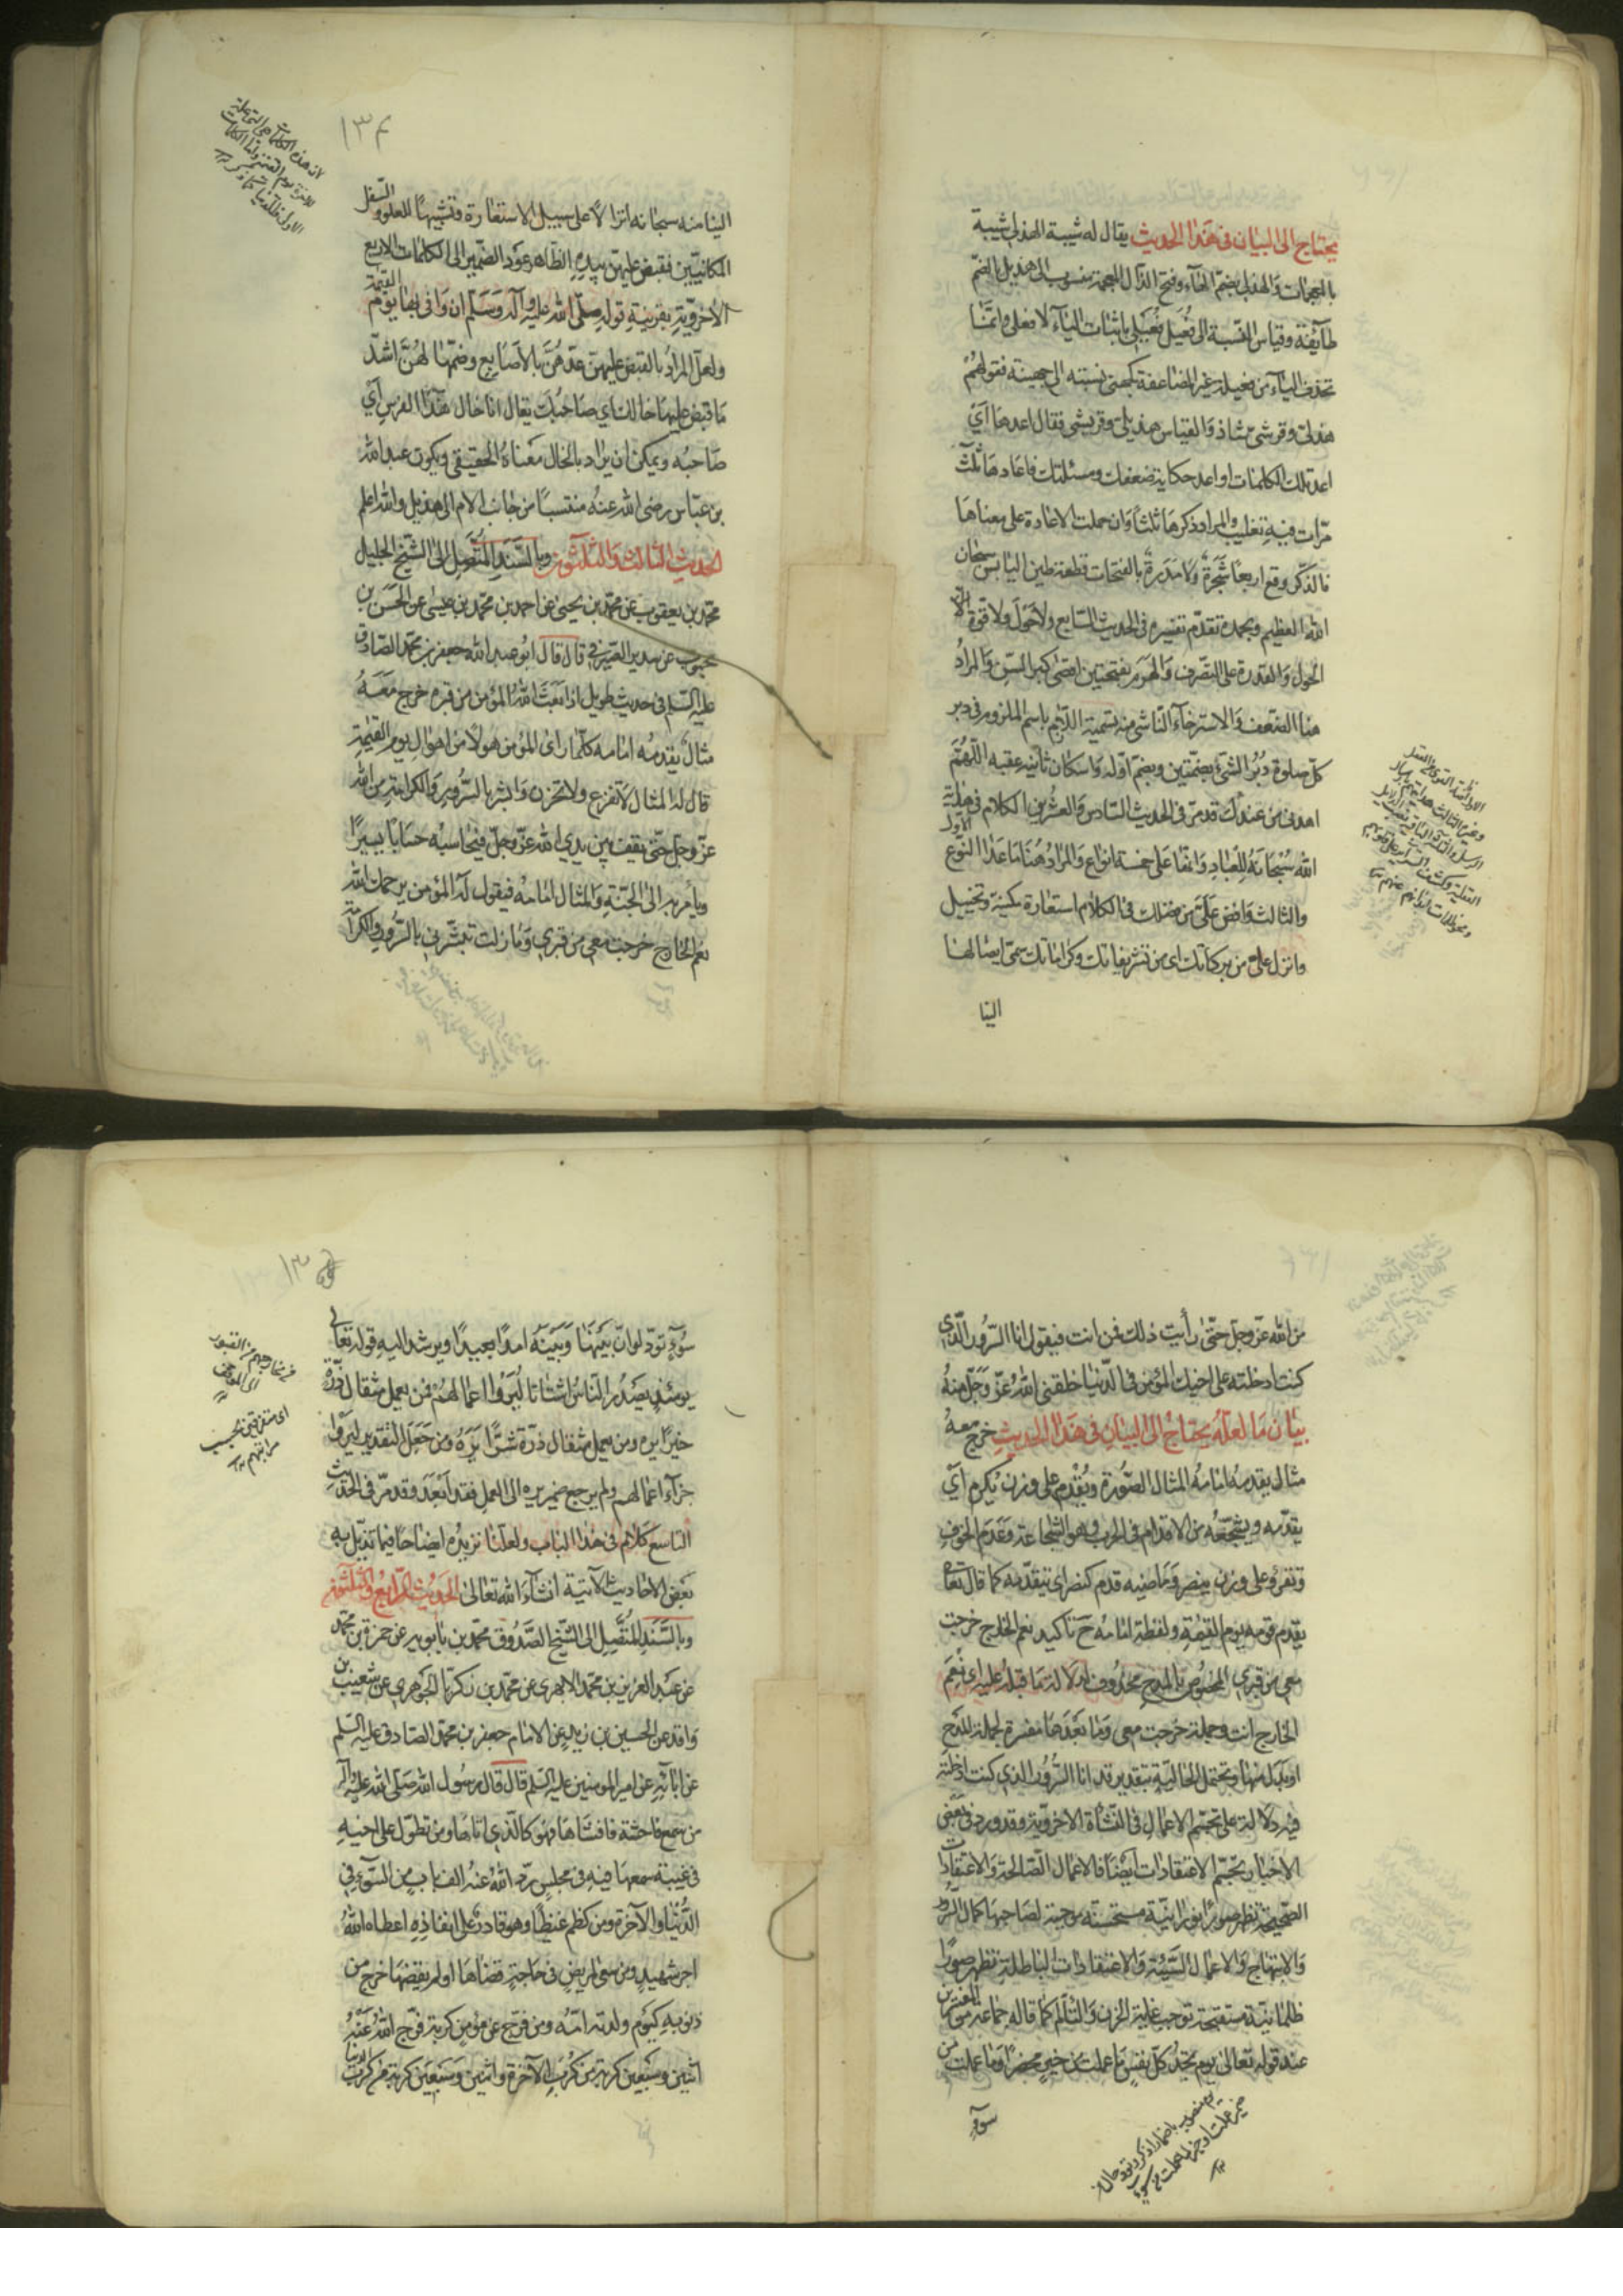 يحتاج الى البيان فى هذا الحديث يقال له شيبة الهذلى شيبة
بالمعجمات والهذلى بضم الهاء وفتح الذال المعجمة منسوب الى هذيل بالضم
طايفة وقياس النسبة الى فعيل فعيلى باثبات الياء لا فعلى وانما
تحذف الياء من فعيلة غير المضاعفة كجهنى نسبته الى جهينة فقولهم
هذلى وقرشى شاذ والقياس هذيلى وقريشى فقال اعدها اى
اعد تلك الكلمات او اعد حكاية ضعفك ومسئلتك فاعادها ثلث
مرات فيه تغليب والمراد ذكرها ثلثا وان حملت الاعادة على معناها
فالذكر وقع اربعا شجرة ولا مدرة بالفتحات قطعة طين اليابس سبحان
الله العظيم وبحمده تقدم تفسيره فى الحديث السابع ولا حول ولا قوة الا
الحول والقدرة على التصرف والهرم بفتحتين اقصى كبر السن والمراد
هنا الضعف والاسترخاء الناشى منه تسمية اللازم باسم الملزوم فى دبر
كل صلوة دبر الشئ بضمتين وبضم اوله واسكان ثانيه عقبه اللهم
اهدنى من عندك قد مر فى الحديث السادس والعشرين الكلام فى هداية
الله سبحانه للعباد وانها على خمسة انواع والمراد هنا ما عدا النوع الاول
والثالث وافض على من فضلك فى الكلام استعارة مكنية وتخييل
وانزل على من بركاتك اى من تشريفاتك وكراماتك سمى ايصالها
الينا
١٣٤
الينا منه سبحانه انزالا على سبيل الاستعارة وتشبيها للعلو والسفل
المكانيين فقبض عليهن بيده الظاهر عود الضمير الى الكلمات الاربع
الاخروية بقرينة قوله صلى الله عليه وآله وسلم ان وافى بها يوم القيمة
ولعل المراد بالقبض عليهن عدهن بالاصابع وضمها لهن اشد
ما قبض عليها خالك اى صاحبك يقال انا خال هذا الفرس اى
صاحبه ويمكن ان يراد بالخال معناه الحقيقى ويكون عبد الله
بن عباس رضى الله عنه منتسبا من جانب الام الى هذيل والله اعلم
الحديث الثالث والثلثون وبالسند المتصل الى الشيخ الجليل
محمد بن يعقوب عن محمد بن يحيى عن احمد بن محمد بن عيسى عن الحسن بن
محبوب عن سدير الصيرفى قال قال ابو عبد الله جعفر بن محمد الصادق
عليه السلم فى حديث طويل اذا بعث الله المؤمن من قبره خرج معه
مثال يقدمه امامه كلما راى المؤمن هولا من اهوال يوم القيمة
قال له المثال لا تفزع ولا تحزن وابشر بالسرور والكرامة من الله
عز وجل حتى يقف بين يدى الله عز وجل فيحاسبه حسابا يسيرا
ويأمر به الى الجنة والمثال امامه فيقول له المؤمن يرحمك الله
نعم الخارج خرجت معى من قبرى وما زلت تبشرنى بالسرور والكرامة
من الله عز وجل حتى رأيت ذلك فمن انت فيقول انا السرور الذى
كنت ادخلته على اخيك المؤمن فى الدنيا خلقنى الله عز وجل منه
بيان ما لعله يحتاج الى البيان فى هذا الحديث خرج معه
مثال يقدمه امامه المثال الصورة ويقدم على وزن يكرم اى
يقدمه ويشجعه من الاقدام فى الحرب وهو الشجاعة وعدم الخوف
وتقرؤ على وزن ينصر وماضيه قدم كنصر اى يتقدمه كما قال تعالى
يقدم قومه يوم القيمة ولفظة امامه ح تاكيد نعم الخارج خرجت
معى من قبرى المخصوص بالمدح محذوف لدلالة ما قبله عليه اى نعم
الخارج انت وجملة خرجت معى وما بعدها مفسرة لجملة المدح
او بدل منها ويحتمل الحالية بتقدير قد انا السرور الذى كنت ادخلته
فيه دلالة على تجسم الاعمال فى النشأة الاخروية وقد ورد فى بعض
الاخبار تجسم الاعتقادات ايضا فالاعمال الصالحة والاعتقادات
الصحيحة تظهر صورا نورانية مستحسنة موجبة لصاحبها كمال السرور
والابتهاج والاعمال السيئة والاعتقادات الباطلة تظهر صورا
ظلمانية مستقبحة توجب غاية الحزن والتألم كما قاله جماعة من المفسرين
عند قوله تعالى يوم تجد كل نفس ما عملت من خير محضرا وما عملت من
سوء
سوء تود لو ان بينها وبينه امدا بعيدا ويرشد اليه قوله تعالى
يومئذ يصدر الناس اشتاتا ليروا اعمالهم فمن يعمل مثقال ذرة
خيرا يره ومن يعمل مثقال ذرة شرا يره ومن جعل التقدير ليروا
جزاء اعمالهم ولم يرجع ضمير يره الى العمل فقد ابعد وقد مر فى الحديث
التاسع كلام فى هذا الباب ولعلنا نزيده ايضاحا فيما نذيل به
بعض الاحاديث الآتية انشاء الله تعالى الحديث الرابع والثلثون
وبالسند المتصل الى الشيخ الصدوق محمد بن بابويه عن حمزة بن محمد
عن عبد العزيز بن محمد الابهرى عن محمد بن زكريا الجوهرى عن شعيب بن
واقد عن الحسين بن زيد عن الامام جعفر بن محمد الصادق عليه السلم
عن آبائه عن امير المومنين عليه السلم قال قال رسول الله صلى الله عليه وآله
من سمع فاحشة فافشاها فهو كالذى اتاها ومن تطول على اخيه
فى غيبة سمعها فيه فى مجلس رد الله عنه الف باب من السوء فى
الدنيا والآخرة ومن كظم غيظا وهو قادر على انفاذه اعطاه الله
اجر شهيد ومن سعى لمريض فى حاجة قضاها او لم يقضها خرج من
ذنوبه كيوم ولدته امه ومن فرج عن مؤمن كربة فرج الله عنه
اثنين وسبعين كربة من كرب الآخرة واثنين وسبعين كربة من كرب الدنيا
من مخارجهم من القبور
الى الموقف
اى متفرقين بحسب
مراتبهم